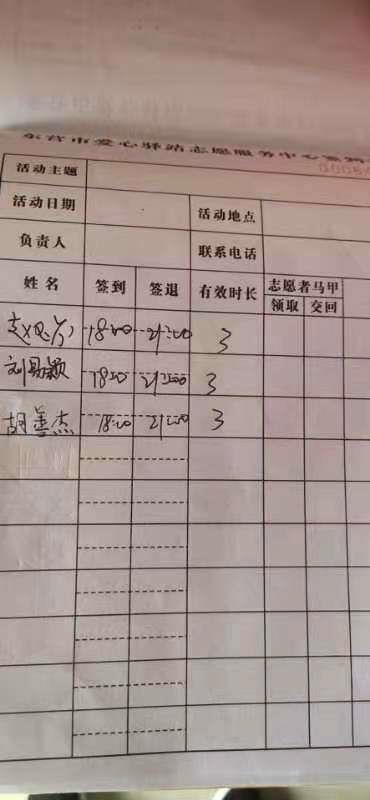 东营市爱心驿站志愿服务中心签到
活动主题
活动日期 活动地点
负责人 联系电话
姓名 签到 签退 有效时长 志愿者马甲
领取 交回
18:00 21:00 3
刘易颖 18:00 21:00 3
胡善杰 18:00 21:00 3